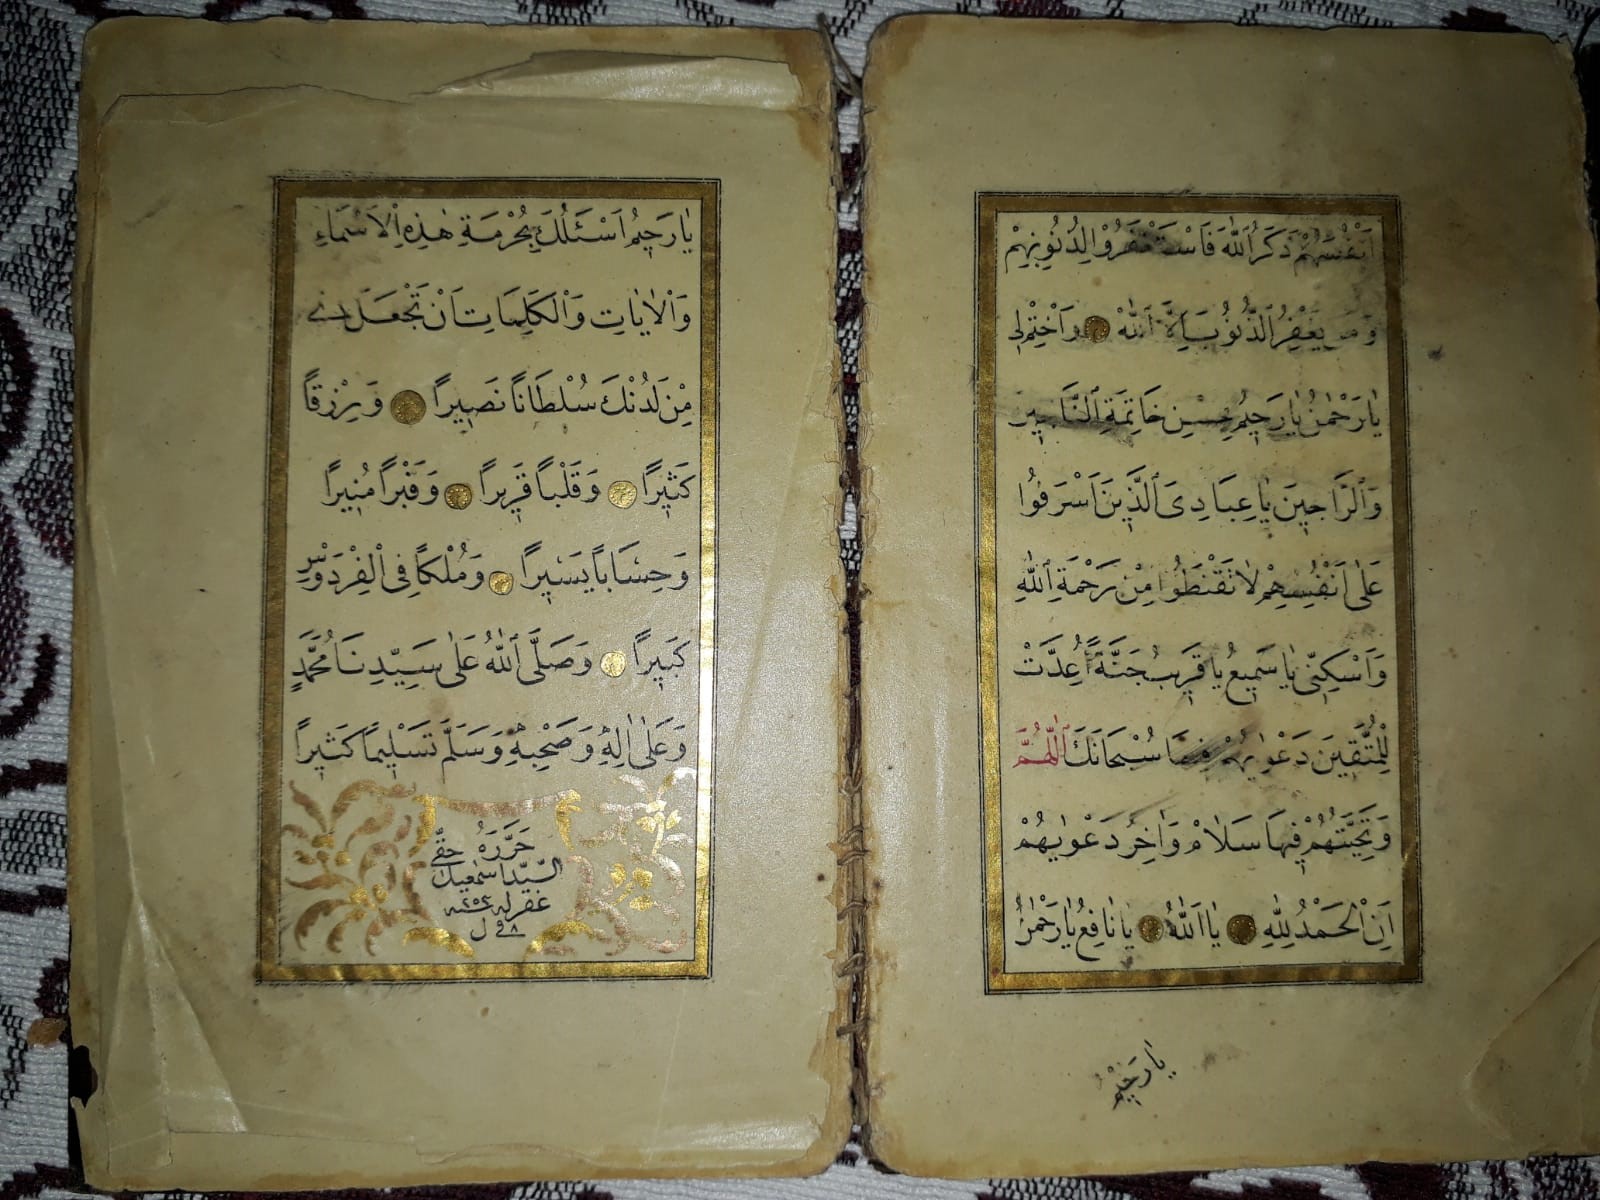 اَنْفُسَهُمْ ذَكَرُوا اللّٰهَ فَاسْتَغْفَرُوْا لِذُنُوبِهِمْ
وَمَنْ يَغْفِرُ الذُّنُوبَ اِلَّا اللّٰهُ وَاخْتِمْ لِى
يَا رَحْمٰنُ يَا رَحِيمُ بِحُسْنِ خَاتِمَةِ
وَالرَّاجِينَ يَا عِبَادِىَ الَّذِينَ اَسْرَفُوا
عَلٰى اَنْفُسِهِمْ لَا تَقْنَطُوا مِنْ رَحْمَةِ اللّٰهِ
وَاَسْكِنِّى يَا سَمِيعُ يَا قَرِيبُ جَنَّةً اُعِدَّتْ
لِلْمُتَّقِينَ دَعْوٰيهُمْ فِيهَا سُبْحَانَكَ اللّٰهُمَّ
وَتَحِيَّتُهُمْ فِيهَا سَلَامٌ وَاٰخِرُ دَعْوٰيهُمْ
اَنِ الْحَمْدُ لِلّٰهِ يَا اَللّٰهُ يَا نَافِعُ يَا رَحْمٰنُ
يَا رَحِيمُ
يَا رَحِيمُ اَسْئَلُكَ بِحُرْمَةِ هٰذِهِ الْاَسْمَاءِ
وَالْاٰيَاتِ وَالْكَلِمَاتِ اَنْ تَجْعَلَ لِى
مِنْ لَدُنْكَ سُلْطَانًا نَصِيرًا وَرِزْقًا
كَثِيرًا وَقَلْبًا قَرِيرًا وَقَبْرًا مُنِيرًا
وَحِسَابًا يَسِيرًا وَمُلْكًا فِى الْفِرْدَوْسِ
كَبِيرًا وَصَلَّى اللّٰهُ عَلٰى سَيِّدِنَا مُحَمَّدٍ
وَعَلٰى اٰلِهِ وَصَحْبِهِ وَسَلَّمَ تَسْلِيمًا كَثِيرًا
حَرَّرَهُ حقى
السّيّد اسمٰعيل
غفر له